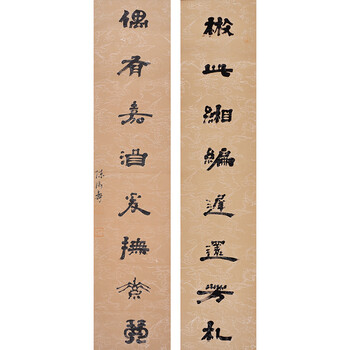 此緗編遲還芳札
偶有嘉酒爰撫琴
陳鴻壽